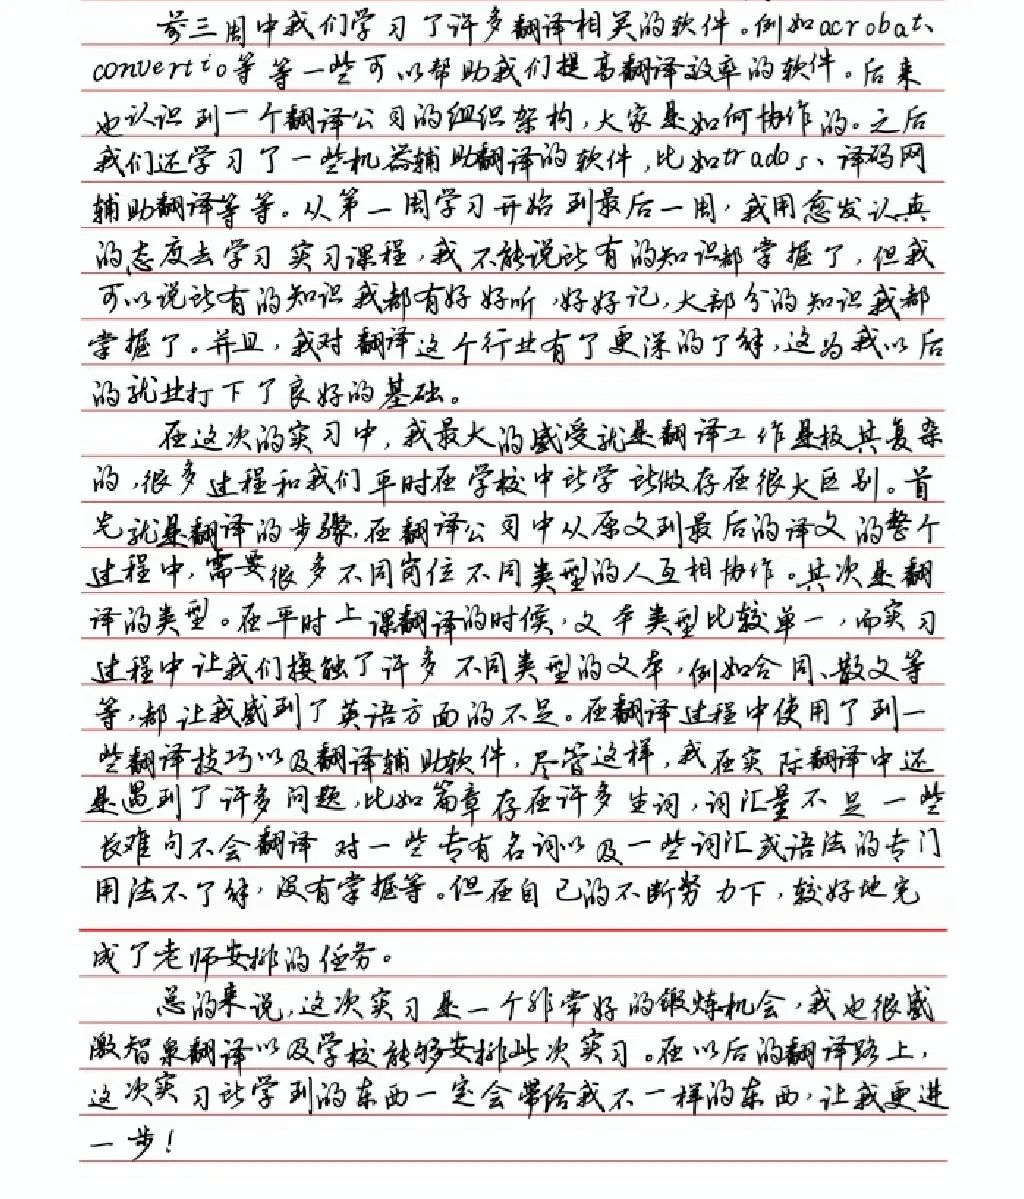 前三周中我们学习了许多翻译相关的软件。例如acrobat、
convertio等等一些可以帮助我们提高翻译效率的软件。后来
也认识到一个翻译公司的组织架构，大家是如何协作的。之后
我们还学习了一些机器辅助翻译的软件，比如trados、译码网
辅助翻译等等。从第一周学习开始到最后一周，我用愈发认真
的态度去学习实习课程，我不能说所有的知识都掌握了，但我
可以说所有的知识我都有好好听，好好记，大部分的知识我都
掌握了。并且，我对翻译这个行业有了更深的了解，这为我以后
的就业打下了良好的基础。
在这次的实习中，我最大的感受就是翻译工作是极其复杂
的，很多过程和我们平时在学校中所学所做存在很大区别。首
先就是翻译的步骤，在翻译公司中从原文到最后的译文的整个
过程中，需要很多不同岗位不同类型的人互相协作。其次是翻
译的类型。在平时上课翻译的时候，文本类型比较单一，而实习
过程中让我们接触了许多不同类型的文本，例如合同、散文等
等，都让我感到了英语方面的不足。在翻译过程中使用了到一
些翻译技巧以及翻译辅助软件，尽管这样，我在实际翻译中还
是遇到了许多问题，比如篇章存在许多生词，词汇量不足一些
长难句不会翻译 对一些专有名词以及一些词汇或语法的专门
用法不了解，没有掌握等。但在自己的不断努力下，较好地完
成了老师安排的任务。
总的来说，这次实习是一个非常好的锻炼机会，我也很感
激智泉翻译以及学校能够安排此次实习。在以后的翻译路上，
这次实习所学到的东西一定会带给我不一样的东西，让我更进
一步！